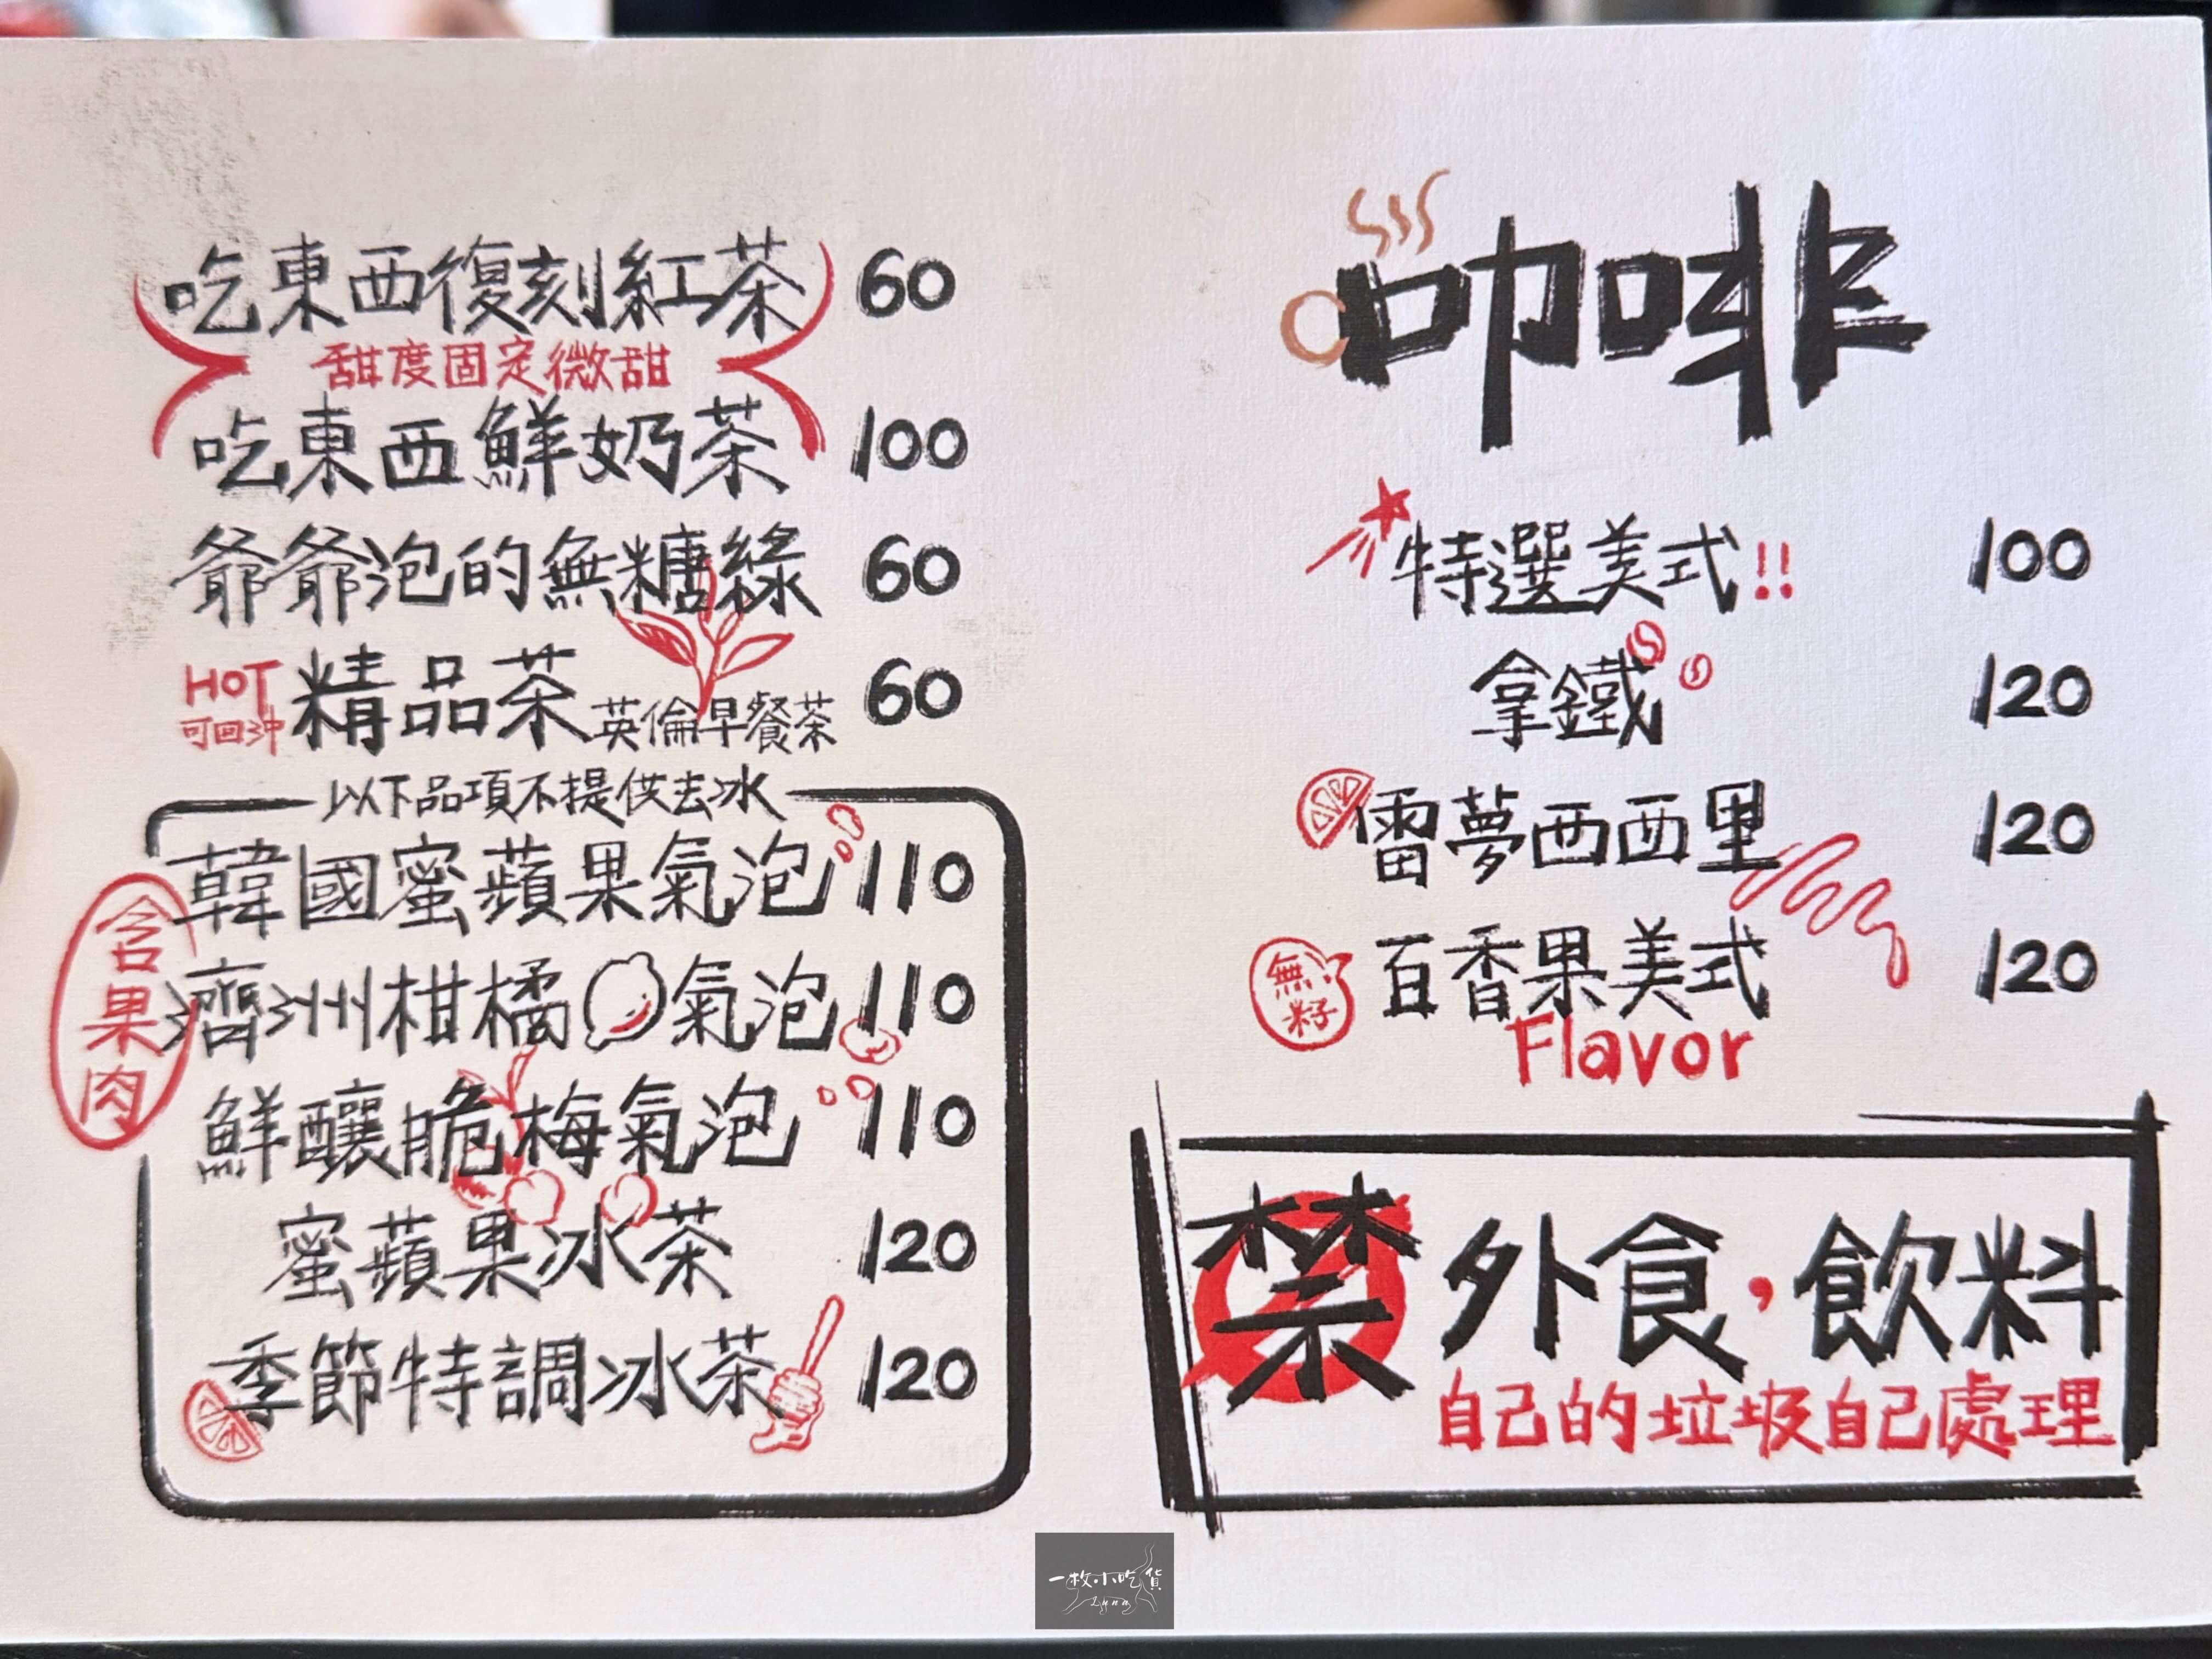 吃東西復刻紅茶 60
甜度固定微甜
吃東西鮮奶茶 100
爺爺泡的無糖綠 60
HOT
可回沖
精品茶 英倫早餐茶 60
以下品項不提供去冰
含果肉
韓國蜜蘋果氣泡 110
濟州柑橘氣泡 110
鮮釀脆梅氣泡 110
蜜蘋果冰茶 120
季節特調冰茶 120
咖啡
特選美式!! 100
拿鐵 120
雷夢西西里 120
無籽
百香果美式 120
Flavor
禁外食,飲料
自己的垃圾自己處理
一枚小吃貨
Luna